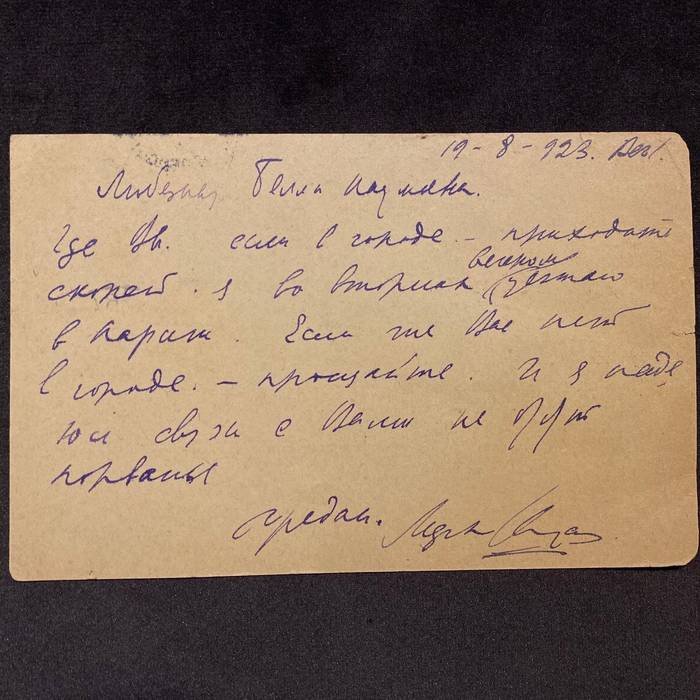 19-8-923.
Любезная Белла Наумовна.
Где Вы. если в городе – приходите
скорей. я во вторник вечером уезжаю
в Париж. Если же Вас нет
в городе. – прощайте. И я надѣ
юсь связи с Вами не будут
порваны
предан.